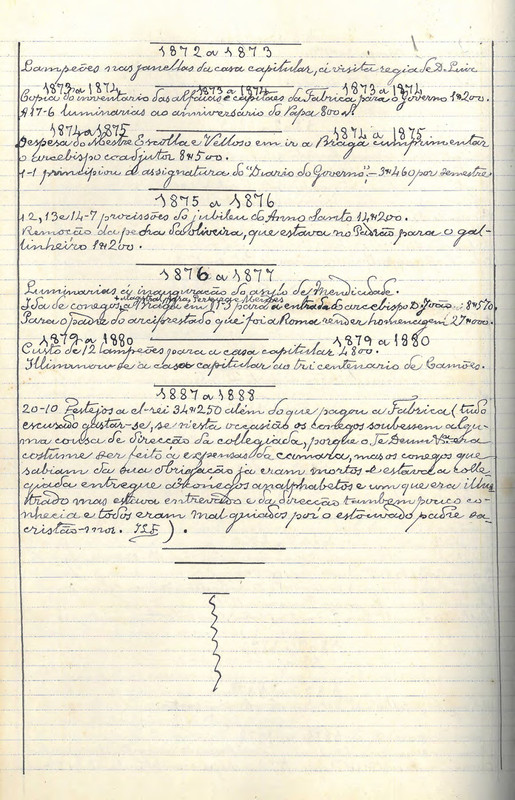 1872 a 1873
Lampeões nas janellas da casa capitular, á visita regia de D. Luiz
1873 a 1874 1873 a 1874 1873 a 1874
Copia do inventario das alfaias e capitaes da Fabrica para o Governo 1200.
A 17-6 luminarias ao anniversario do Papa 800
1874 a 1875 1874 a 1875
Despesa do Mestre Escolla e Velloso em ir a Braga cumprimentar
o arcebispo coadjutor 8$500.
1-1 principiou a assignatura do "Diario do Governo", - 3$460 por semestre
1875 a 1876
12, 13 e 14-7 procissões do jubileu do Anno Santo 14$200.
Remoção da pedra da oliveira, que estava no Padrão para o gal-
linheiro 1$200.
1876 a 1877
Luminarias á inauguração do asylo de Mendicidade.
+ Magistral para
Ida de conegos a Braga em para a entrada do arcebispo D. João: 8$570.
Para o padre do arciprestado que foi a Roma render homenagem 27$000.
1879 a 1880 1879 a 1880
Custo de 12 lampeões para a casa capitular 4800.
Illiminou-se a casa capitular ao tricentenario de Camões.
1887 a 1888
20-10 Festejos a el-rei 34$250 além do que pagou a Fabrica (tudo
escuzado gastar-se, se n'esta occasião os conegos soubessem algu-
ma cousa de direcção da collegiada, porque o Te Deum era
costume ser feito a expensas da camara, mas os conegos que
sabiam da sua obrigação ja eram mortos e estava a colle-
giada entregue a 3 conegos analphabetos e um que era illus-
trado mas estava entrevado e da direcção tambem pouco co-
nhecia e todos eram mal guiados por o estouvado padre sa-
cristão-mor. ).